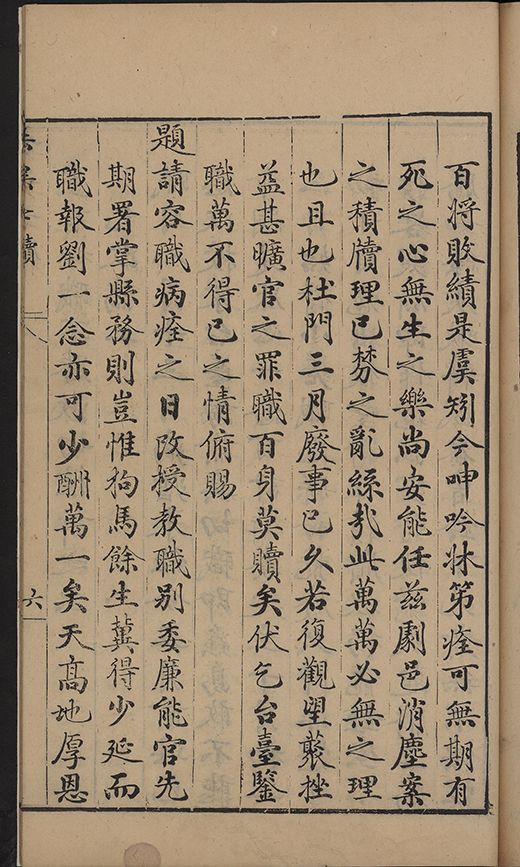 百將敗績是虞矧今呻吟牀第痊可無期有
死之心無生之樂尚安能任茲劇邑消塵案
之積牘理已棼之亂絲哉此萬萬必無之理
也且也杜門三月廢事已久若復觀望蔽拙
益甚曠官之罪職百身莫贖矣伏乞台臺鑒
職萬不得已之情俯賜
題請容職病痊之日改授教職別委廉能官先
期署掌縣務則豈惟狗馬餘生冀得少延而
職報劉一念亦可少酬萬一矣天高地厚恩
牘
六